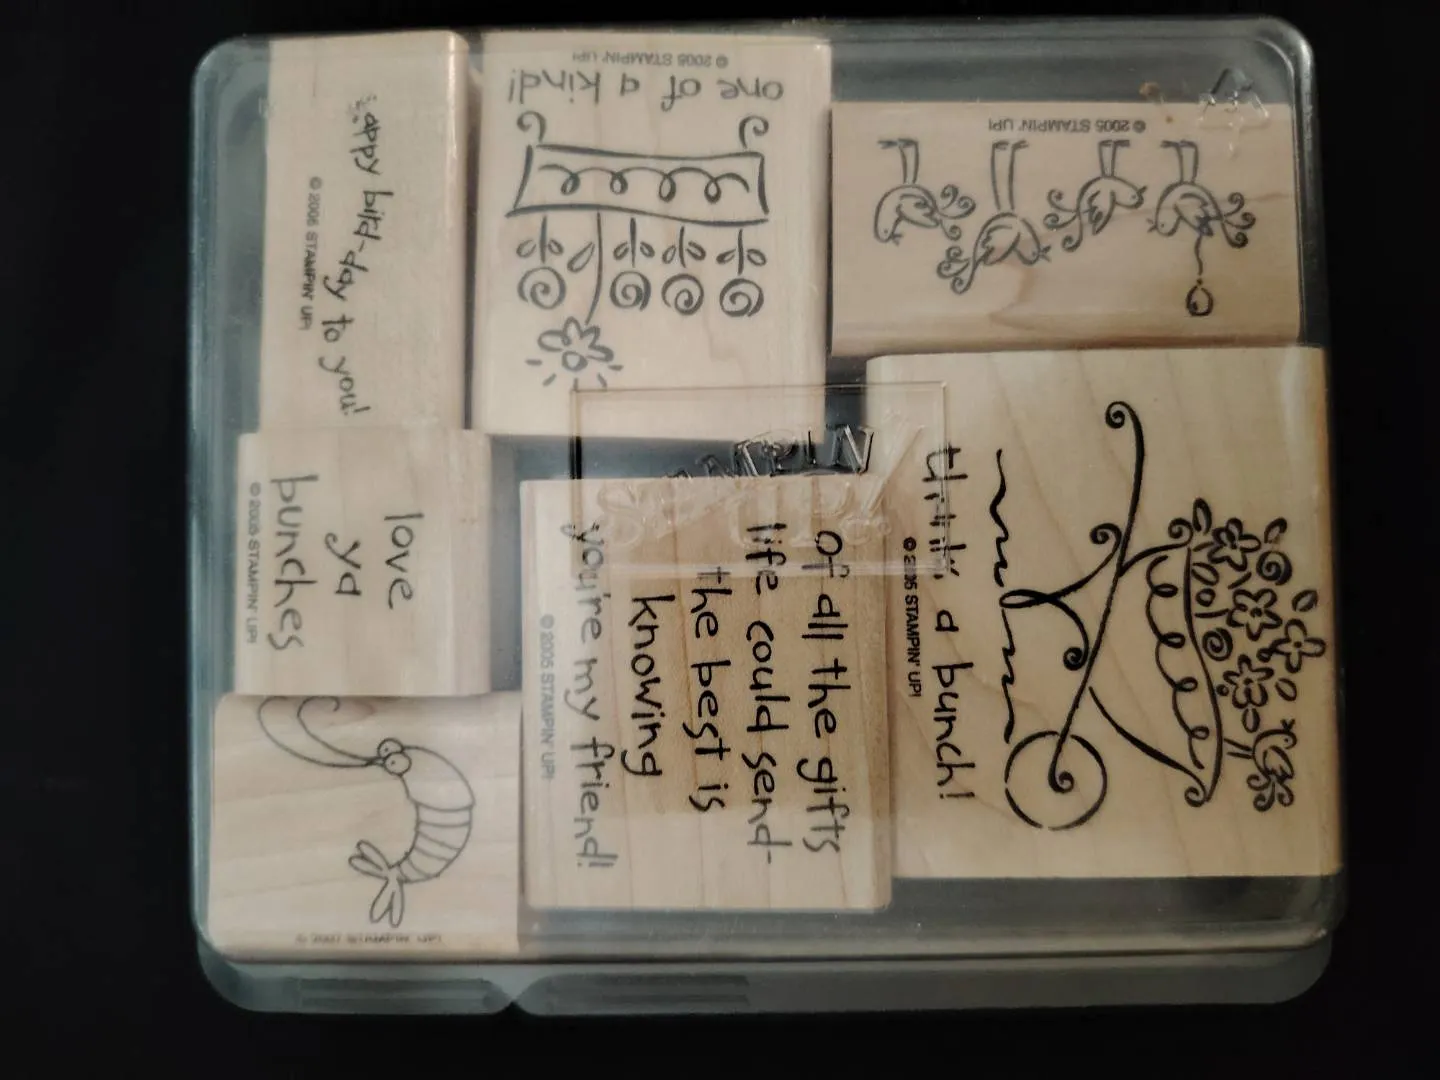 happy bird-day to you!
© 2005 STAMPIN' UP!
© 2005 STAMPIN' UP!
one of a kind!
© 2005 STAMPIN' UP!
love
ya
bunches
© 2005 STAMPIN' UP!
STAMPIN'
UP!
of all the gifts
life could send-
the best is
knowing
you're my friend!
© 2005 STAMPIN' UP!
thank a bunch!
© 2005 STAMPIN' UP!
© 2005 STAMPIN' UP!